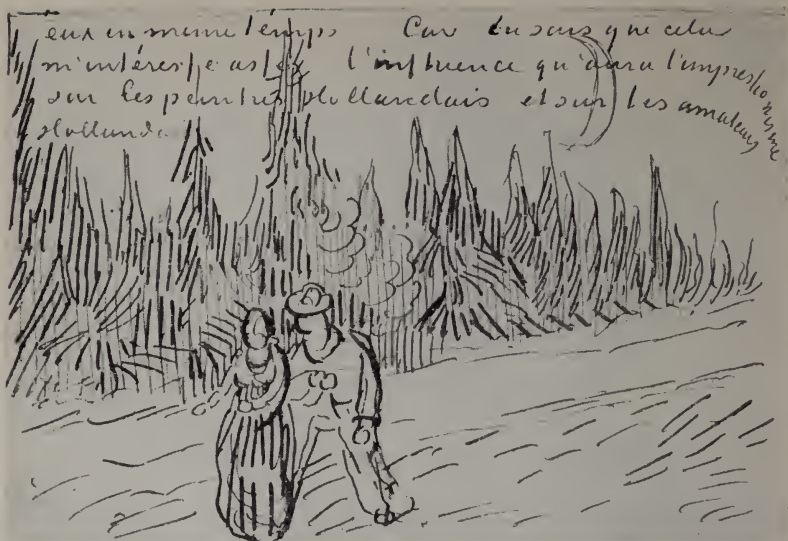 eux en meme temps Car tu sais que cela
m'intéresse assez l'influence qu'aura l'impressionisme
sur les peintres Hollandais et sur les amateurs
Hollandais